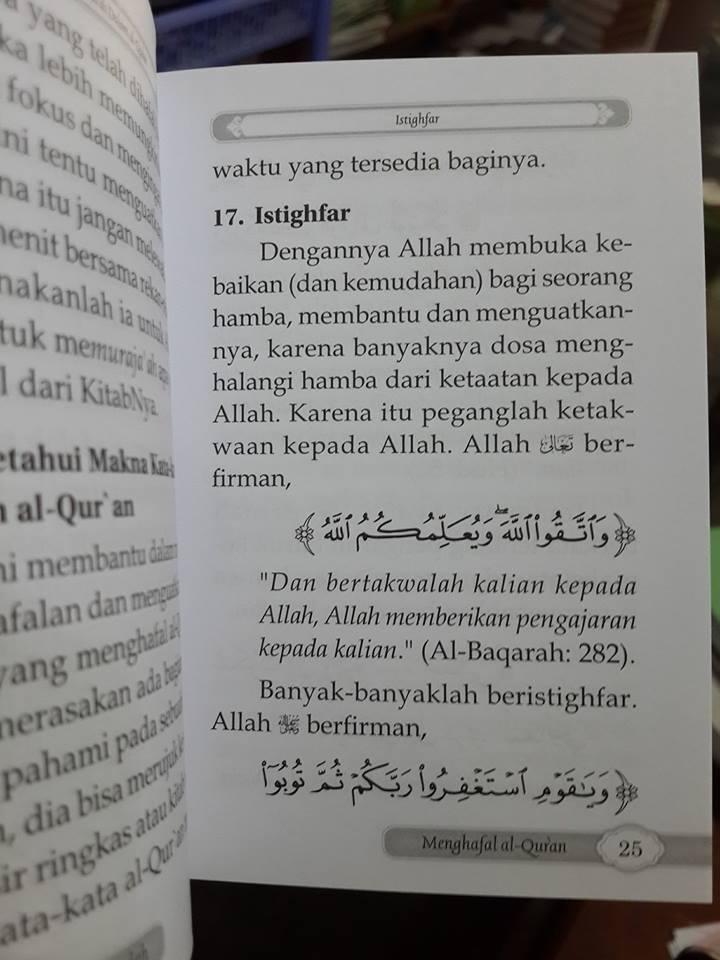 yang telah
lebih
fokus dan
ni tentu
na itu jangan
menit bersama
nakanlah ia untuk
tuk memuraja'ah
l dari KitabNya.
etahui Makna
al-Qur`an
ni membantu dalam
afalan dan
yang menghafal
merasakan ada
pahami pada
, dia bisa merujuk
ir ringkas atau
ata-kata al-Qur`an
Istighfar
waktu yang tersedia baginya.
17. Istighfar
Dengannya Allah membuka ke-
baikan (dan kemudahan) bagi seorang
hamba, membantu dan menguatkan-
nya, karena banyaknya dosa meng-
halangi hamba dari ketaatan kepada
Allah. Karena itu peganglah ketak-
waan kepada Allah. Allah تَعَالَى ber-
firman,
﴿ وَٱتَّقُوا۟ ٱللَّهَ ۖ وَيُعَلِّمُكُمُ ٱللَّهُ ﴾
"Dan bertakwalah kalian kepada
Allah, Allah memberikan pengajaran
kepada kalian." (Al-Baqarah: 282).
Banyak-banyaklah beristighfar.
Allah berfirman,
﴿ وَيَـٰقَوْمِ ٱسْتَغْفِرُوا۟ رَبَّكُمْ ثُمَّ تُوبُوٓا۟
Menghafal al-Qur`an 25